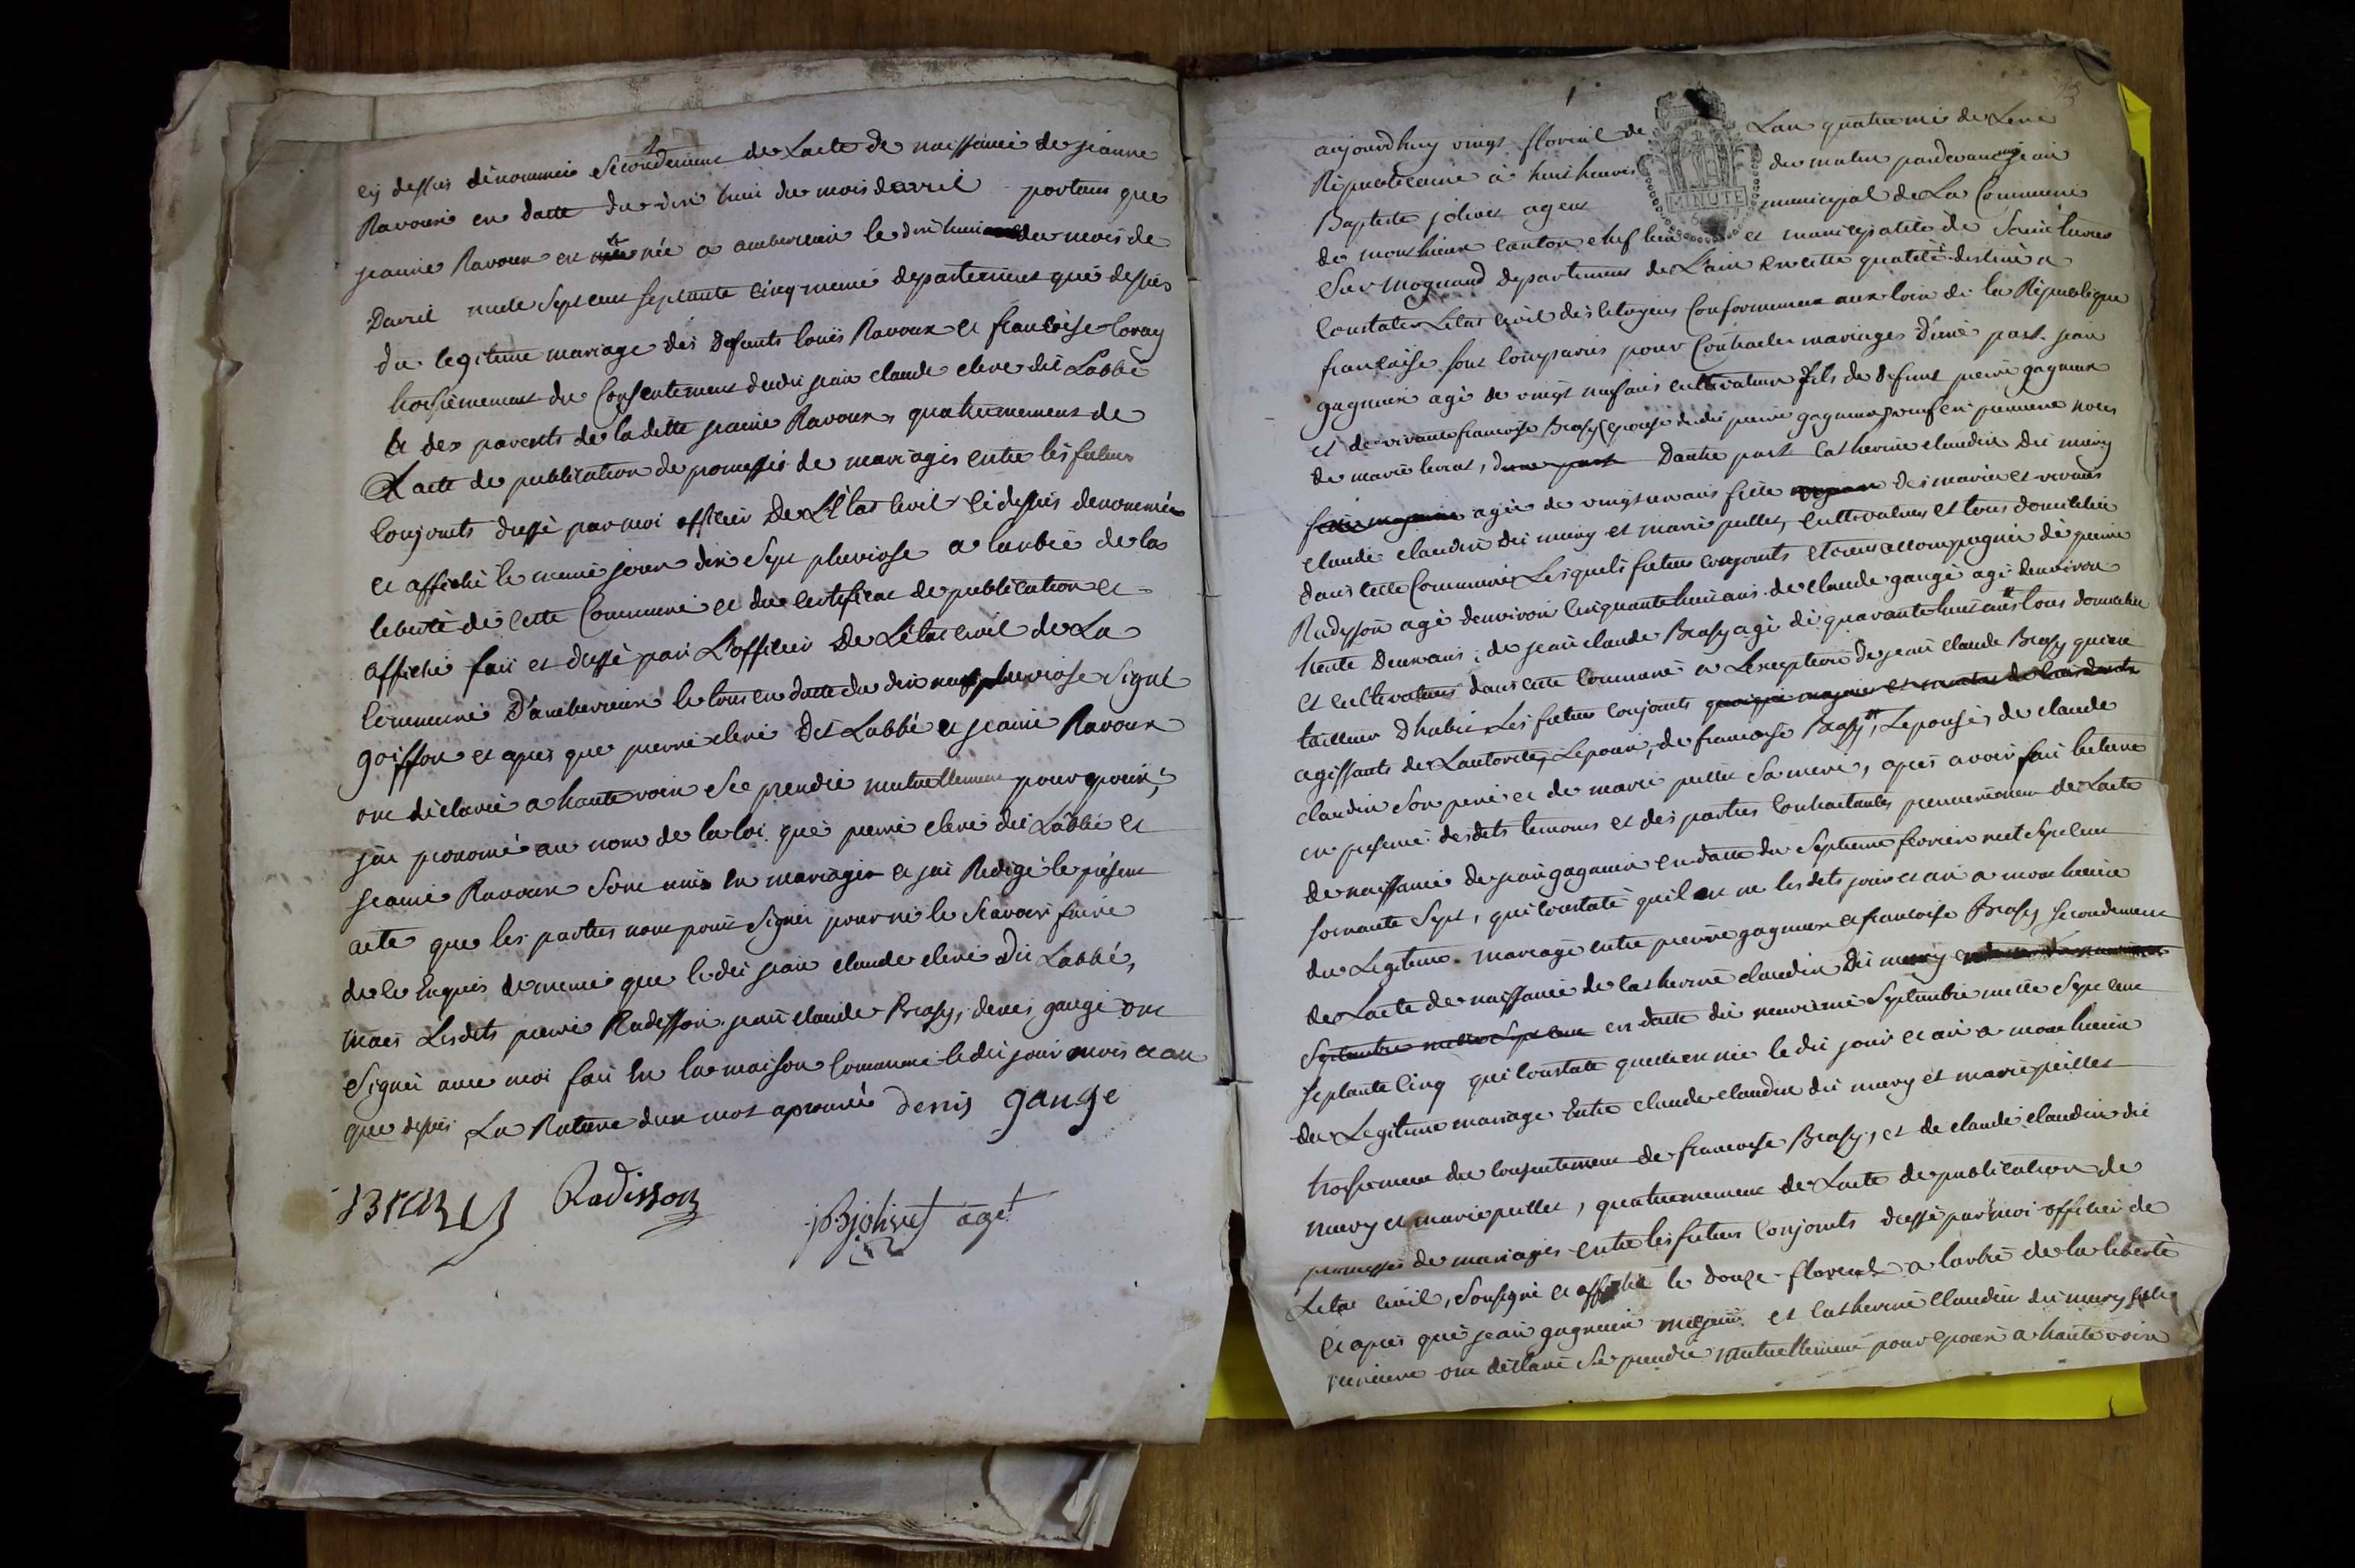 cy dessus dénommé Secondement de Lacte de naissance de jeanne
Ravoux en datte du dix huit du mois davril portant que
jeanne Ravoux est née a amberieux le dix huit du mois de
Davril mille Sept cent septante cinq meme departement que dessus
du legitime mariage des defunts louis Ravoux et francoise
troisiemement du Consentement dudit jean claude clerc dit Labbé
et des parents de laditte jeanne Ravoux, quatriemement de
Lacte de publication de promesses de mariages entre les futurs
Conjoints dressé par moi officier De L'Etat Civil ci dessus denommée
et affiché le meme jour dix Sept pluviose a larbre de la
liberté de cette Commune et du certificat de publication et
affiche fait et dressé par L'officier De L'Etat Civil de La
Commune D'amberieux le tout en datte du dix neuf pluviose Signé
goiffon et apres que pierre clerc dit Labbé et jeanne Ravoux
ont déclaré a haute voix Se prendre mutuellement pour epoux,
jai prononcé au nom de la loi que pierre clerc dit Labbé et
jeanne Ravoux Sont unis en mariage et jai Redigé le présent
acte que les parties nont point Signé pour ne le Scavoir faire
de ce Enquis de meme que ledit jean claude clerc dit Labbé,
mais Lesdits pierre Radisson jean claude Brasy, denis gauge ont
Signé avec moi fait en la maison Commune ledit jour mois et an
que dessus La Rature dun mot aprouvé denis gauge
Brazy Radisson JBjolivet agt
aujourdhuy vingt floreal de Lan quatrieme de Lere
Republicaine a huit heures du matin pardevant moi jean
Baptiste jolivet agent municipal de La Commune
MINUTE
de monthieux canton chef lieu et municipalité de
Sur mognard departement de L'ain en cette qualité destiné a
Constater Letat Civil des Citoyens Conformement aux loix de la République
francaise Sont Comparus pour Contracter mariages Dune part jean
gagneux agé de vingt neuf ans cultivateur fils de defunt pierre gagneux
et de vivante francoise Brasy epouse dudit pierre gagneux, veuf en premiere noces
de marie livrat, d'une part Dautre part Catherine claudin dit mury
fille majeure agée de vingt un ans fille des mariés et vivants
claude claudin dit mury et marie pullet, cultivateurs et tous domiciliés
dans cette Commune Lesquels futurs conjoints etoient accompagnés de pierre
Radisson agé denviron Cinquante huit ans, de claude gauge agé denviron
trente Deux ans; de jean claude Brasy agé de quarante huit ans tous domiciliés
et cultivateurs dans cette Commune a Lexception de jean claude Brasy qui est
tailleur Dhabis Les futurs conjoints
agissants de Lautorité, Lepoux, de francoise Brasy, Lepouse, de claude
claudin Son pere et de marie pullet Sa mere, apres avoir fait lecture
en presence desdits temoins et des parties Contractantes premierement de Lacte
de naissance de jean gagneux en datte du Septieme fevrier mil Sept cent
soixante Sept, qui Constate quil est né lesdits jour et an a monthieux
du Legitime mariage entre pierre gagneux et francoise Brasy Secondement
de Lacte de naissance de Catherine claudin dit mury
Septembre mille Sept cent en datte du neuvieme Septembre mille Sept cent
Septante Cinq qui Constate quelle est née ledit jour et an a monthieux
du Legitime mariage Entre claude claudin dit mury et marie pullet
troisiemement du Consentement de francoise Brasy, et de claude claudin dit
mury et marie pullet, quatriemement de Lacte de publication de
promesses de mariages entre les futurs Conjoints dressé par moi officier de
Letat Civil, Soussigné et affiché le douze floreal a larbre de la liberté
Et apres que jean gagneux et Catherine Claudin dit mury fille
mineure ont déclaré Se prendre mutuellement pour epoux a haute voix